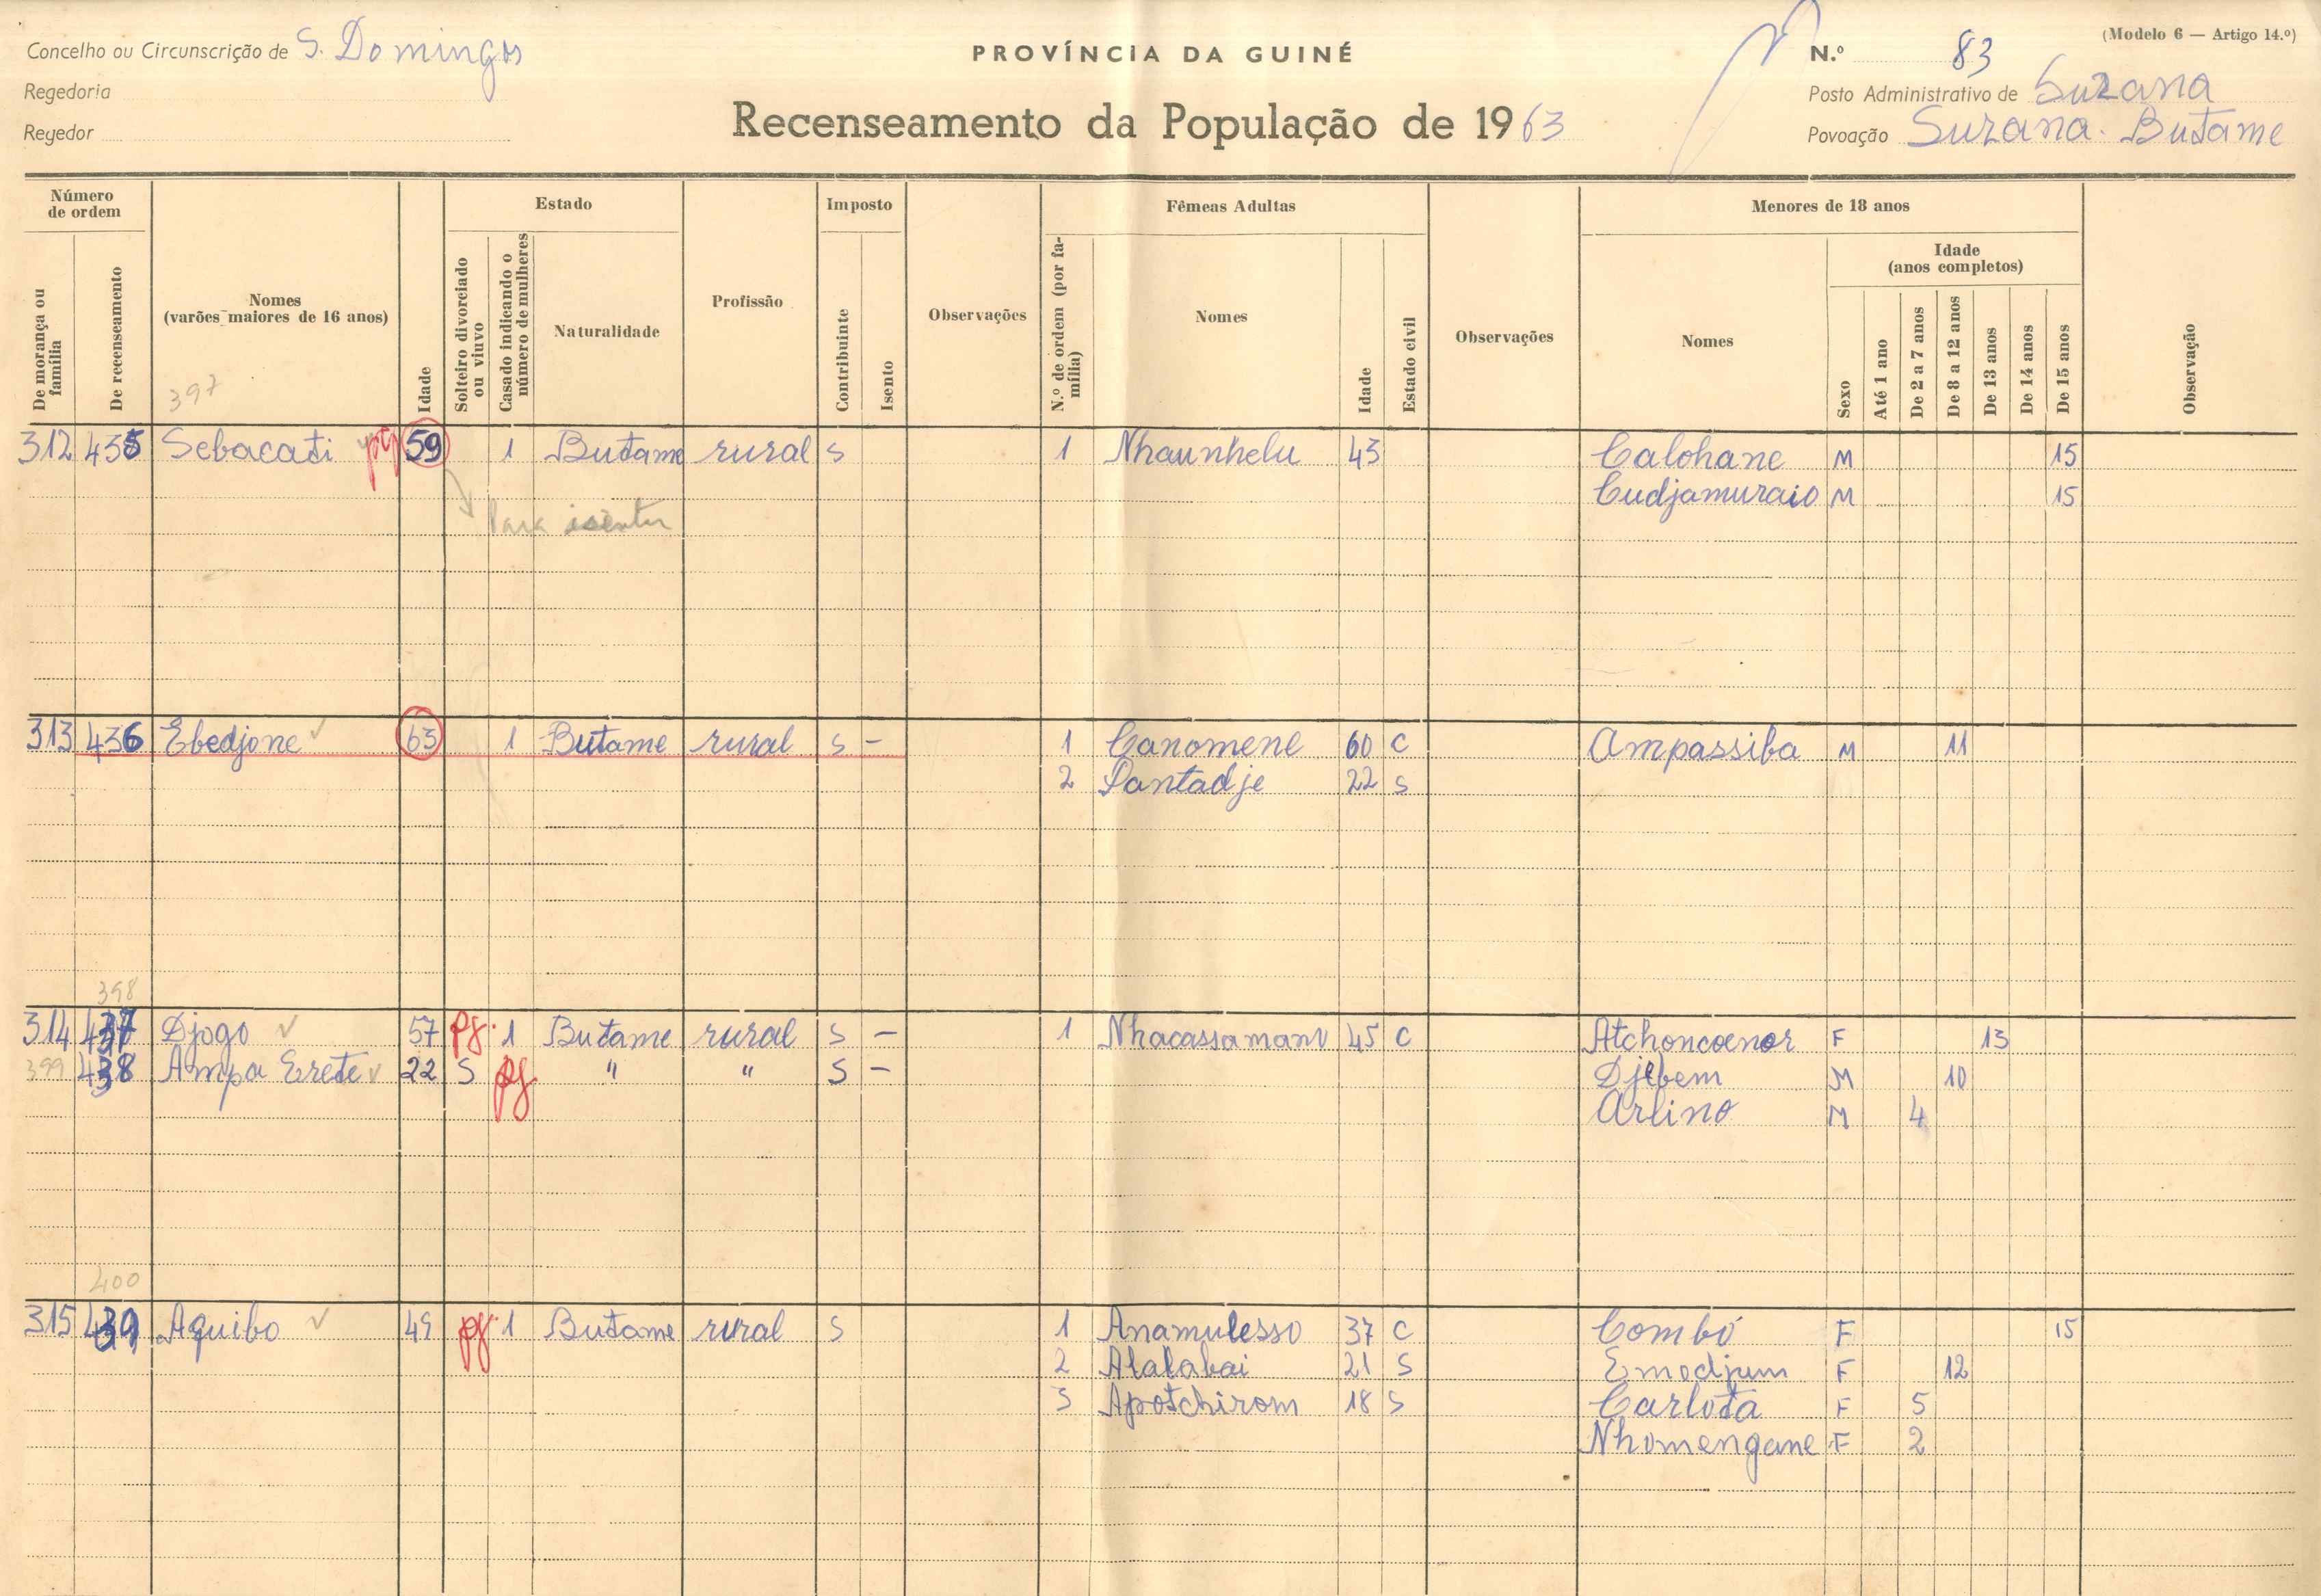 (Modelo 6 — Artigo 14.º)
Concelho ou Circunscrição de S. Domingos
PROVÍNCIA DA GUINÉ
N.º 83
Regedoria
Posto Administrativo de Suzana
Regedor
Recenseamento da População de 1963
Povoação Suzana. Butame
Número de ordem
Estado
Imposto
Fêmeas Adultas
Menores de 18 anos
De morança ou família
De recenseamento
Nomes (varões maiores de 16 anos)
Idade
Solteiro divorciado ou viuvo
Casado indicando o número de mulheres
Naturalidade
Profissão
Contribuinte
Isento
Observações
N.º de ordem (por família)
Nomes
Idade
Estado civil
Observações
Nomes
Sexo
Idade (anos completos)
Até 1 ano
De 2 a 7 anos
De 8 a 12 anos
De 13 anos
De 14 anos
De 15 anos
Observação
397
312 435 Sebacati pg 59 1 Butame rural S 1 Nhaunhelu 43 Calohane M 15
Cudjamuraio M 15
Para isentar
313 436 Ebedjone 63 1 Butame rural S – 1 Canomene 60 C Ampassiba M 11
2 Santadje 22 S
398
314 437 Djogo 57 pg. 1 Butame rural S – 1 Nhacassamano 45 C Atchoncoenor F 13
399 438 Ampa Erete 22 S pg " " S – Djebem M 10
Arlino M 4
400
315 439 Aquibo 49 pg. 1 Butame rural S 1 Anamulesso 37 C Combó F 15
2 Alalabai 21 S Emodjum F 12
3 Apotchirom 18 S Carlota F 5
Nhomengane F 2